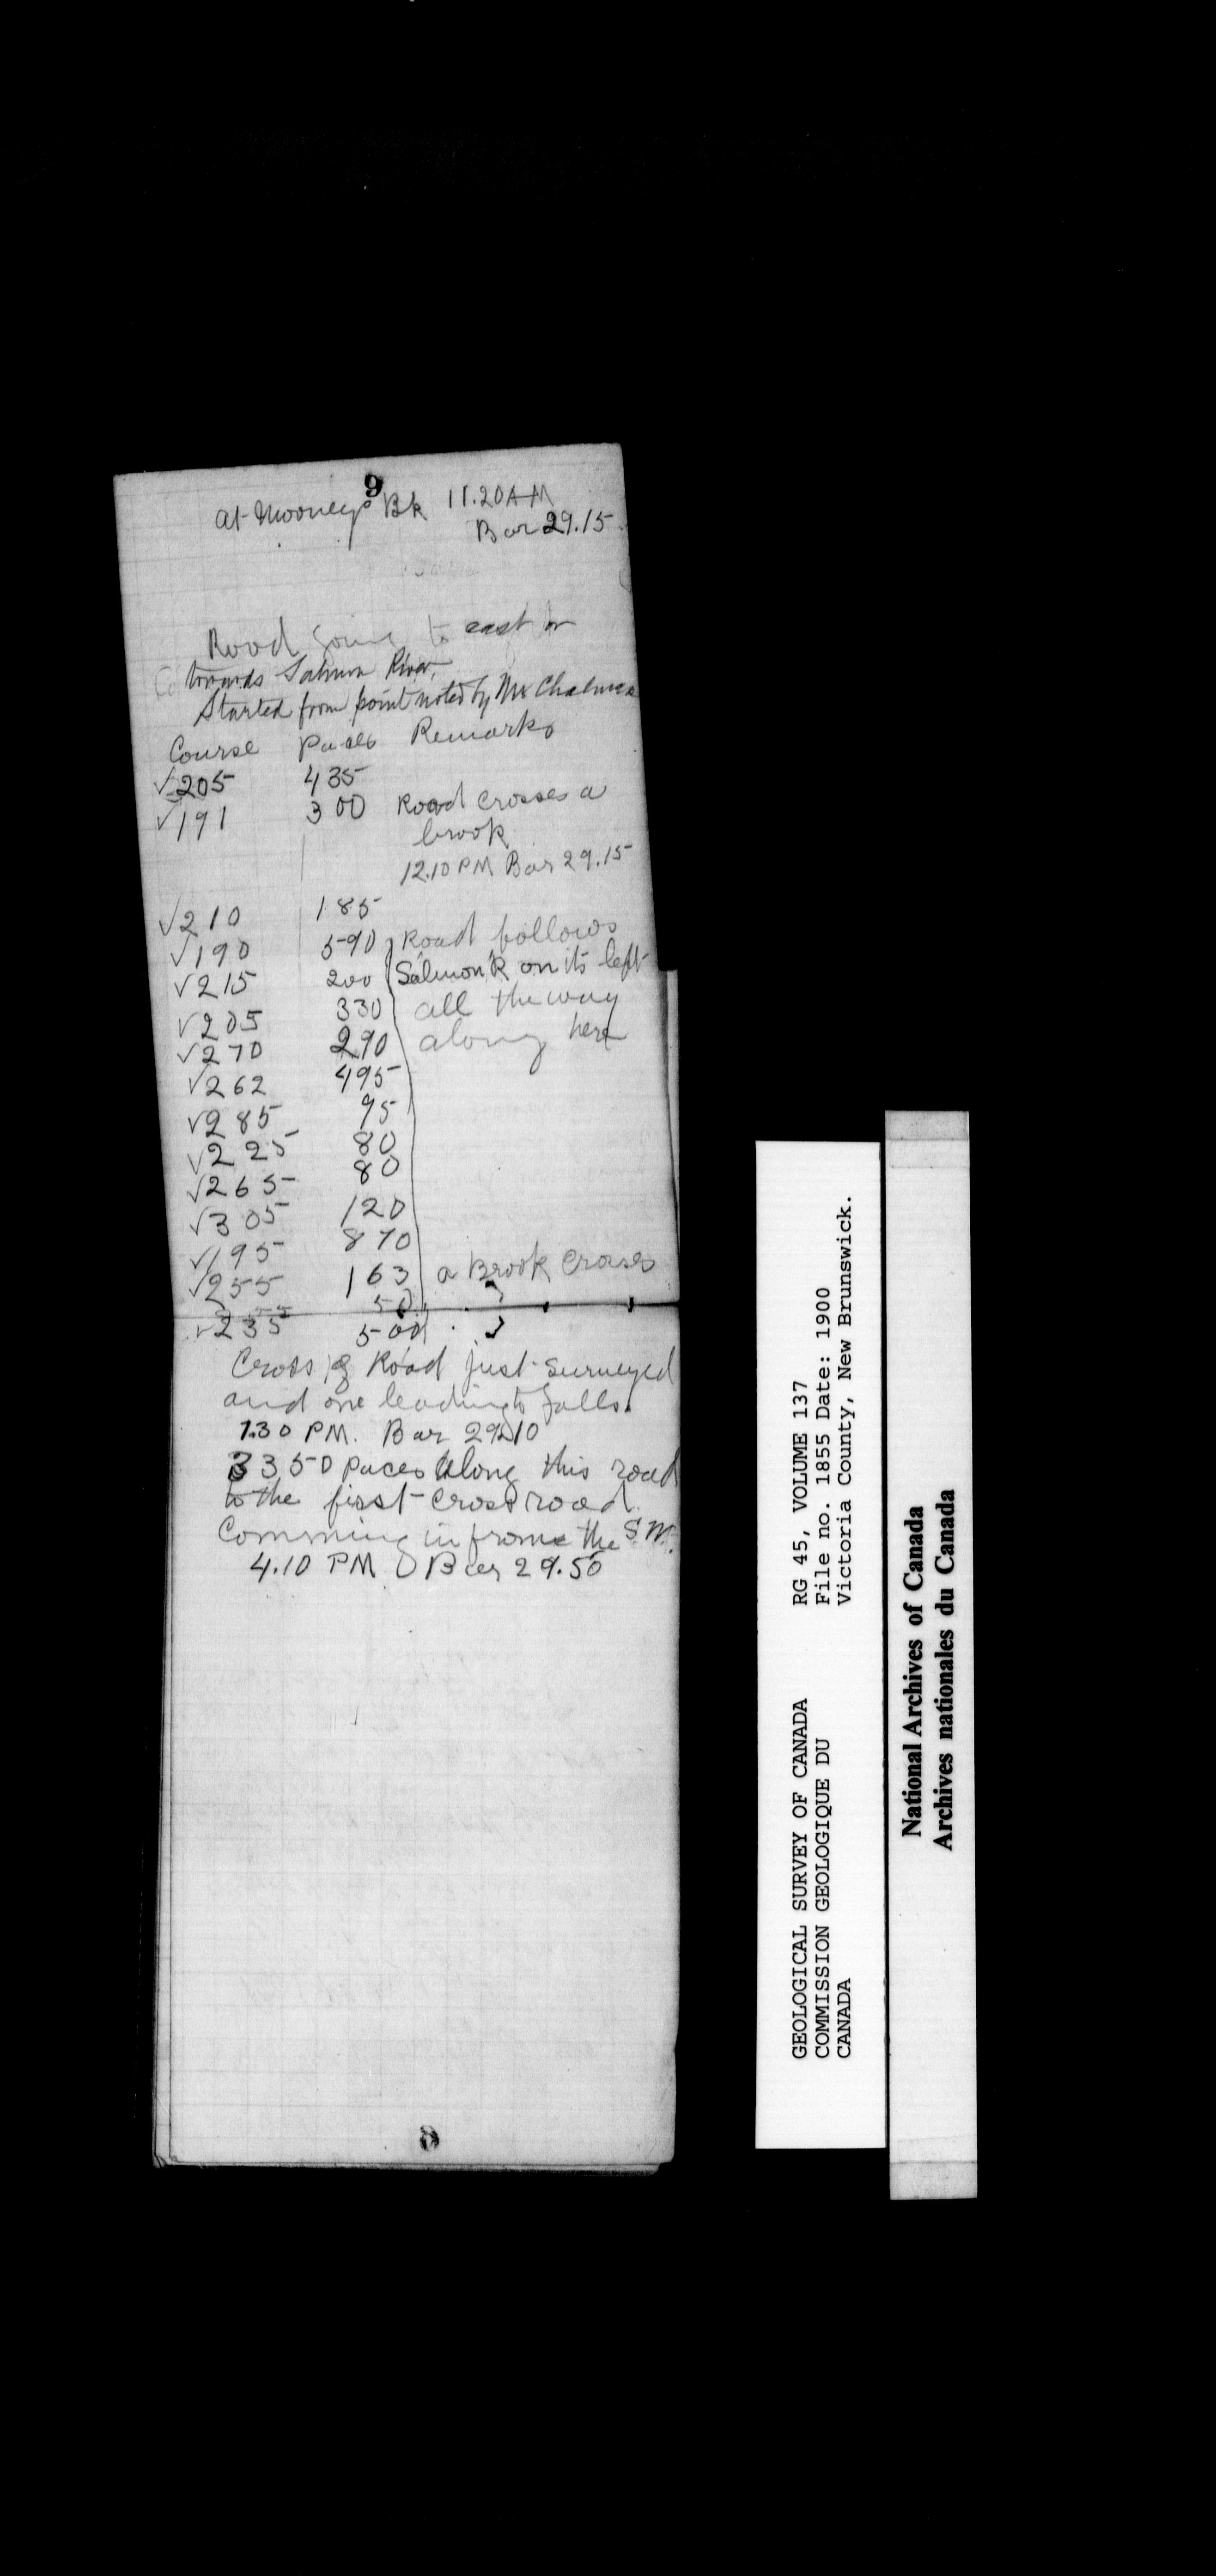 9
at Mooneys Bk 11.20 AM
Bar 29.15
Road going to east or
towards Salmon River.
Started from point noted by Mr Chalmers
Course Paces Remarks
√205 435
√191 300 Road crosses a
brook
12.10 PM Bar 29.15
√210 185
√190 590 Road follows
√215 200 Salmon R on its left
√205 330 all the way
√270 290 along here
√262 495
√285 95
√225 80
√265 80
√305 120
√195 870
√255 163 a Brook crosses
50
√235 500
Cross of Road just surveyed
and one leading to falls.
1.30 PM. Bar 29.10
3350 paces along this road
to the first cross road
Comming in from the S.W.
4.10 PM Bar 29.50
GEOLOGICAL SURVEY OF CANADA RG 45, VOLUME 137
COMMISSION GEOLOGIQUE DU File no. 1855 Date: 1900
CANADA Victoria County, New Brunswick.
National Archives of Canada
Archives nationales du Canada